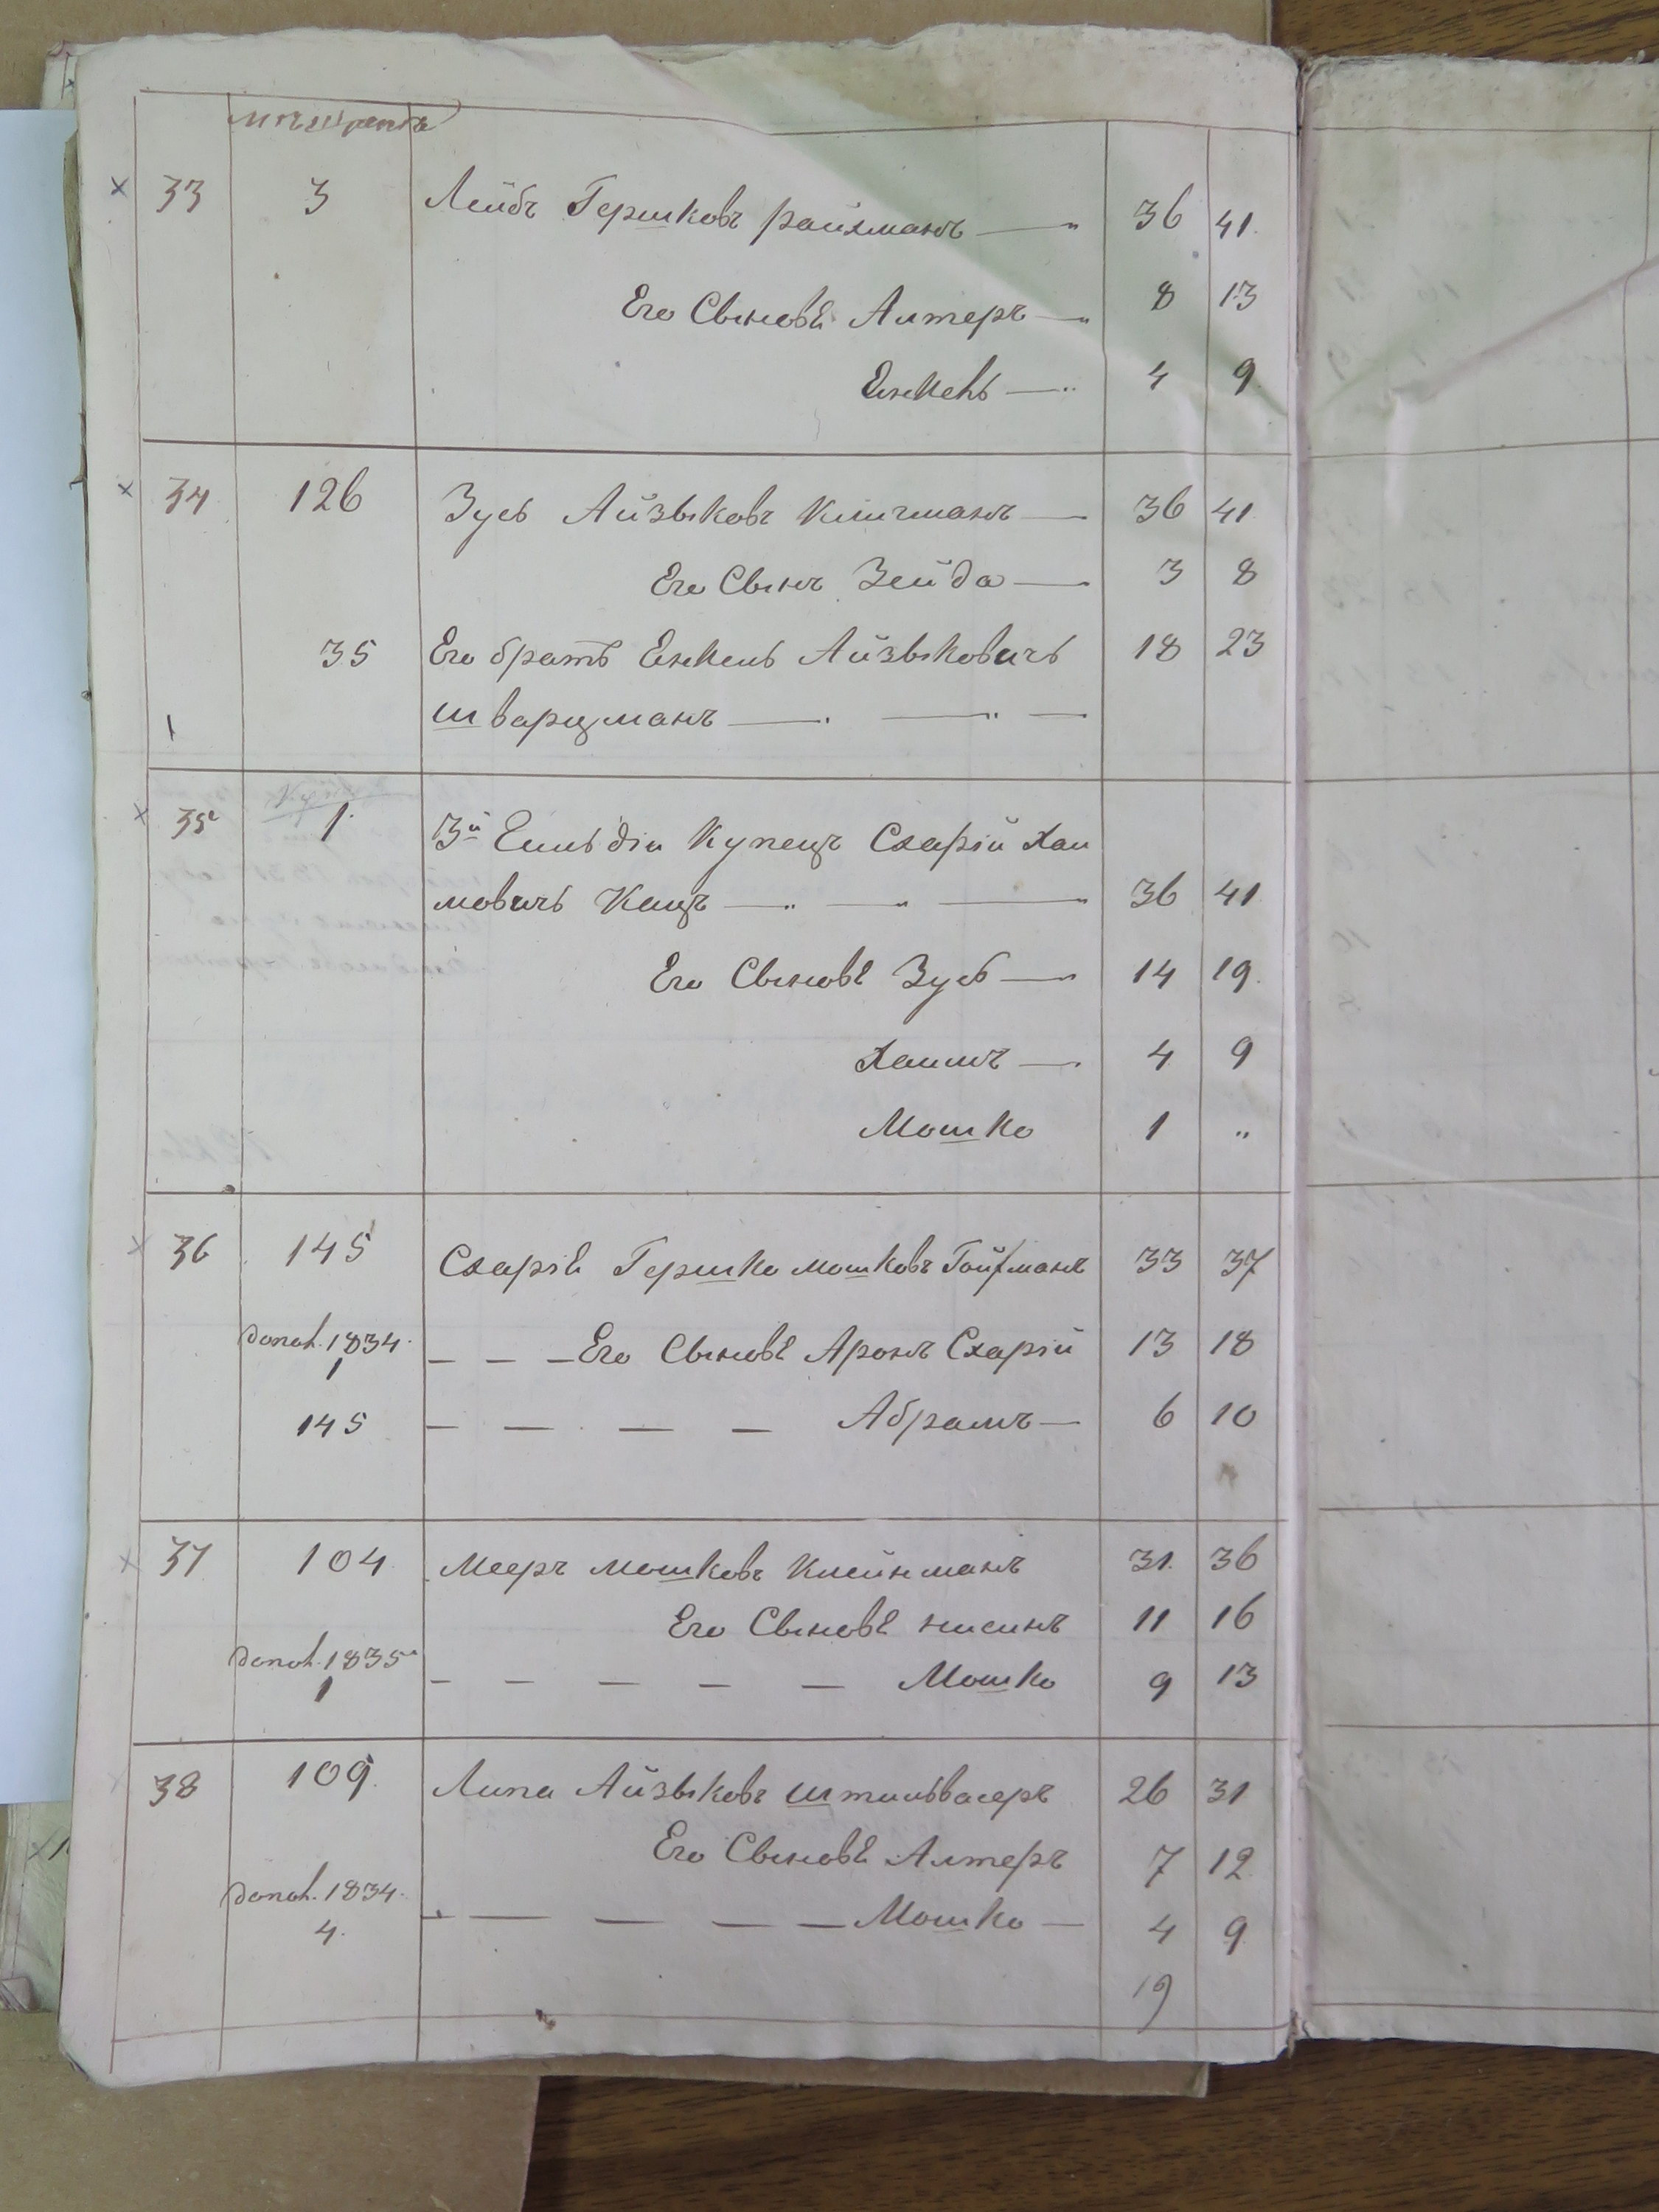 мѣщанъ
33 3 Лейбъ Гершковъ райхманъ — 36 41
Его Сынове Алтеръ — 8 13
Енкель — 4 9
34 126 Зусь Айзыковъ Клигманъ — 36 41
Его Сынъ Зейда — 3 8
35 Его братъ Енкель Айзыковичь 18 23
1 шварцманъ — — —
35 1 3й Гильдіи Купецъ Схарій Хаи
мовичь Кацъ — — — 36 41
Его Сынове Зусь — 14 19
Хаимъ — 4 9
Мошко 1 "
36 145 Схарій Гершко мошковъ Гойфманъ 33 37
допол. 1834. — — — Его Сынове Аронъ Схарій 13 18
1
145 — — — — Абрамъ — 6 10
37 104 Мееръ мошковъ Клейнманъ 31 36
Его Сынове нисинъ 11 16
допол. 1835 — — — — — Мошко 9 13
1
38 109 Липа Айзыковъ штильвасеръ 26 31
Его Сынове Алтеръ 7 12
допол. 1834. — — — — Мошко — 4 9
4.
19